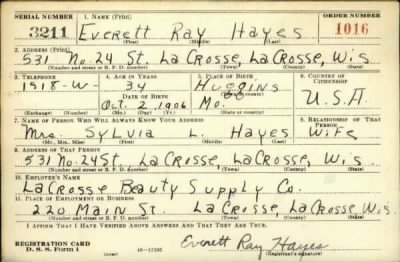 SERIAL NUMBER 1. NAME (Print) ORDER NUMBER
3211 Everett Ray Hayes 1016
(First) (Middle) (Last)
2. ADDRESS (Print)
531 No. 24 St. La Crosse, La Crosse, Wis.
(Number and street or R. F. D. number) (Town) (County) (State)
3. TELEPHONE 4. AGE IN YEARS 5. PLACE OF BIRTH 6. COUNTRY OF CITIZENSHIP
1518-W- 34 Huggins
DATE OF BIRTH (Town or county)
Oct. 2, 1906 Mo. U.S.A.
(Exchange) (Number) (Mo.) (Day) (Yr.) (State or country)
7. NAME OF PERSON WHO WILL ALWAYS KNOW YOUR ADDRESS 8. RELATIONSHIP OF THAT PERSON
Mrs. Sylvia L. Hayes Wife
(Mr., Mrs., Miss) (First) (Middle) (Last)
9. ADDRESS OF THAT PERSON
531 No. 24 St. La Crosse, La Crosse, Wis.
(Number and street or R. F. D. number) (Town) (County) (State)
10. EMPLOYER'S NAME
La Crosse Beauty Supply Co.
11. PLACE OF EMPLOYMENT OR BUSINESS
220 Main St. La Crosse, La Crosse, Wis.
(Number and street or R. F. D. number) (Town) (County) (State)
I AFFIRM THAT I HAVE VERIFIED ABOVE ANSWERS AND THAT THEY ARE TRUE.
REGISTRATION CARD
D. S. S. Form 1 (over) Everett Ray Hayes
(Registrant's signature)